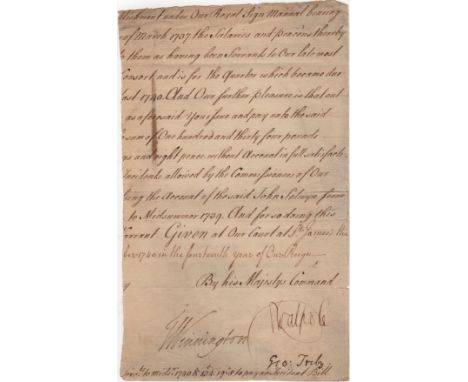 under Our Royal Sign Manual bearing
of March 1737 the Salaries and Pencons thereby
them as having been Servants to Our late most
Consort, and is for the Quarter which became due
last 1740. And Our further pleasure is that out
as aforesaid You issue and pay unto the said
sum of One hundred and thirty four pounds
and eight pence without Account in full satisfact
Incidents allowed by the Commissioners of Our
the Account of the said John Selwyn from
to Midsummer 1739. And for so doing this
Given at Our Court at St. James's the
1740 in the fourteenth year of Our Reign
By his Majestys Command
RWalpole
Winnington
Geo: Treby
1740 &